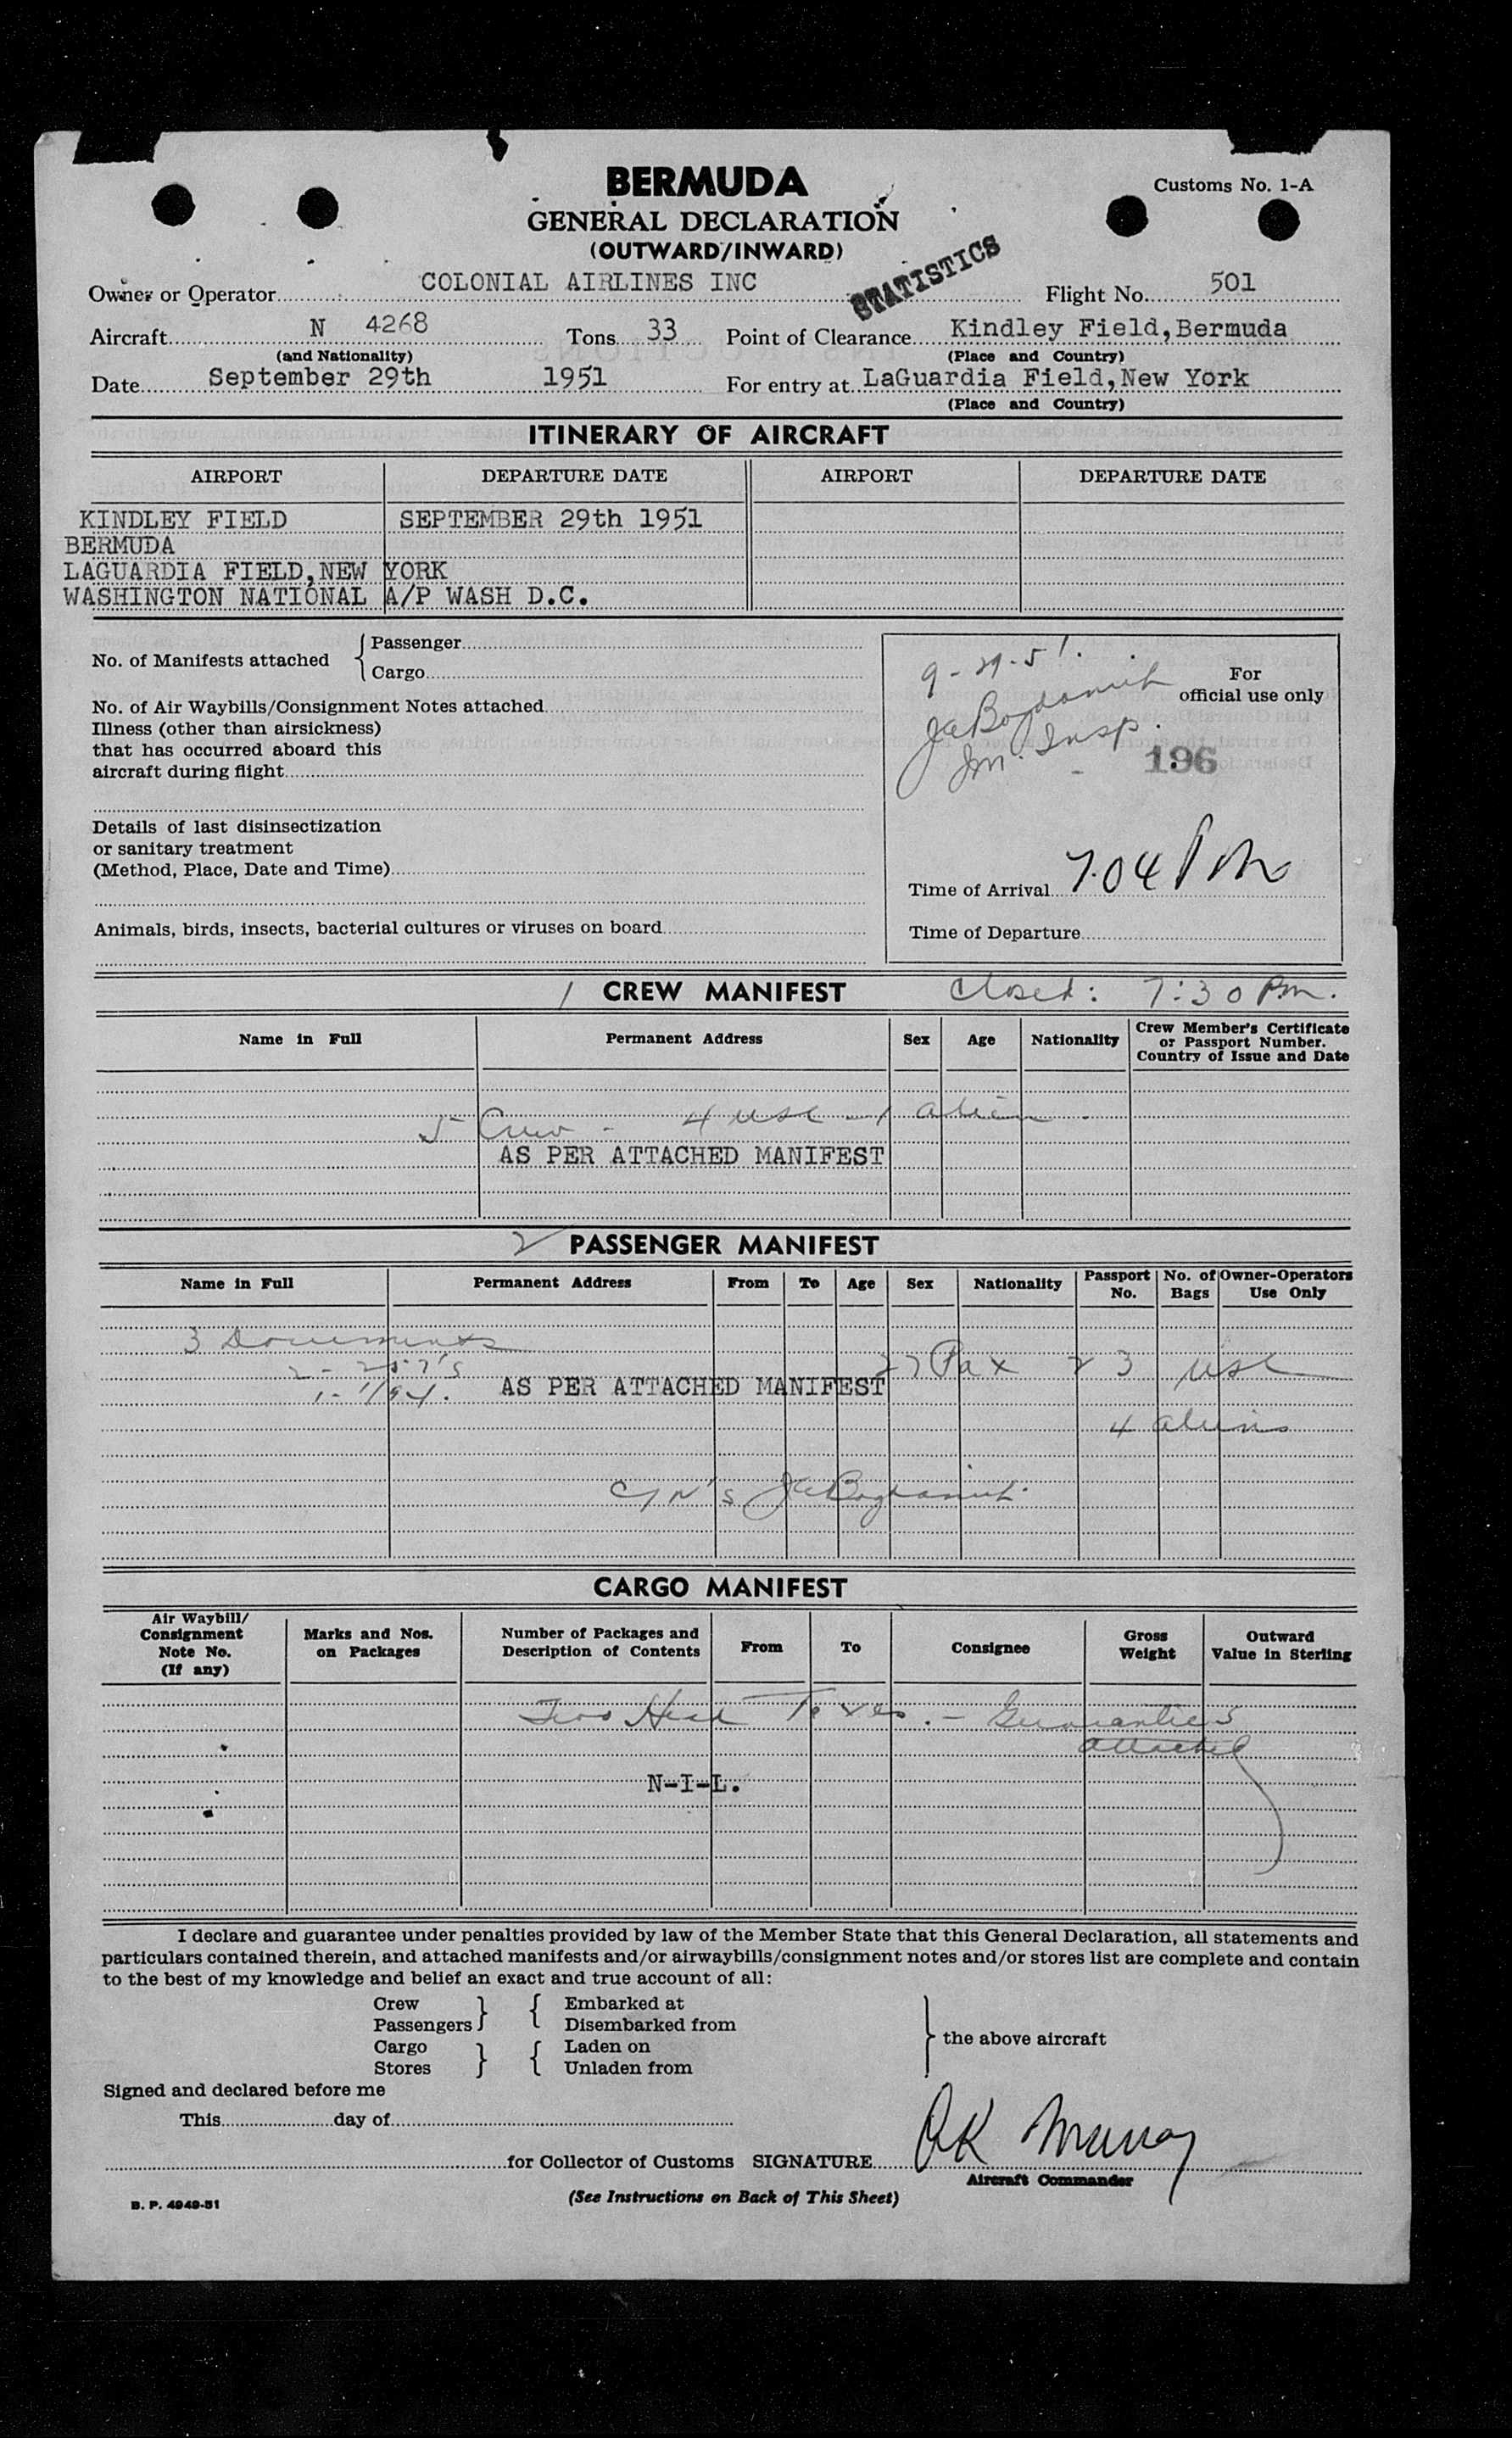 BERMUDA
Customs No. 1-A
GENERAL DECLARATION
(OUTWARD/INWARD)
STATISTICS
Owner or Operator COLONIAL AIRLINES INC Flight No. 501
Aircraft N 4268 Tons 33 Point of Clearance Kindley Field, Bermuda
(and Nationality) (Place and Country)
Date September 29th 1951 For entry at LaGuardia Field, New York
(Place and Country)
ITINERARY OF AIRCRAFT
AIRPORT DEPARTURE DATE AIRPORT DEPARTURE DATE
KINDLEY FIELD SEPTEMBER 29th 1951
BERMUDA
LAGUARDIA FIELD, NEW YORK
WASHINGTON NATIONAL A/P WASH D.C.
No. of Manifests attached { Passenger
Cargo
No. of Air Waybills/Consignment Notes attached
Illness (other than airsickness)
that has occurred aboard this
aircraft during flight
Details of last disinsectization
or sanitary treatment
(Method, Place, Date and Time)
Animals, birds, insects, bacterial cultures or viruses on board
9-29-51.
For
official use only
Im. Insp.
196
Time of Arrival 7.04 PM
Time of Departure
1 CREW MANIFEST Closed: 7:30 Pm.
Name in Full Permanent Address Sex Age Nationality Crew Member's Certificate
or Passport Number.
Country of Issue and Date
5 Crew - 4 usc - 1 alien.
AS PER ATTACHED MANIFEST
2 PASSENGER MANIFEST
Name in Full Permanent Address From To Age Sex Nationality Passport No. No. of Bags Owner-Operators Use Only
3 Documents
2 - 257's 27 Pax 23 usc
1 - I/94. AS PER ATTACHED MANIFEST
4 aliens
CARGO MANIFEST
Air Waybill/
Consignment
Note No.
(If any)
Marks and Nos.
on Packages
Number of Packages and
Description of Contents
From To Consignee
Gross
Weight
Outward
Value in Sterling
Two Head Taxes. - Guarantees
attached
N-I-L.
I declare and guarantee under penalties provided by law of the Member State that this General Declaration, all statements and
particulars contained therein, and attached manifests and/or airwaybills/consignment notes and/or stores list are complete and contain
to the best of my knowledge and belief an exact and true account of all:
Crew } { Embarked at
Passengers Disembarked from
Cargo } { Laden on } the above aircraft
Stores Unladen from
Signed and declared before me
This day of
for Collector of Customs SIGNATURE Murray
Aircraft Commander
B. P. 4949-51
(See Instructions on Back of This Sheet)